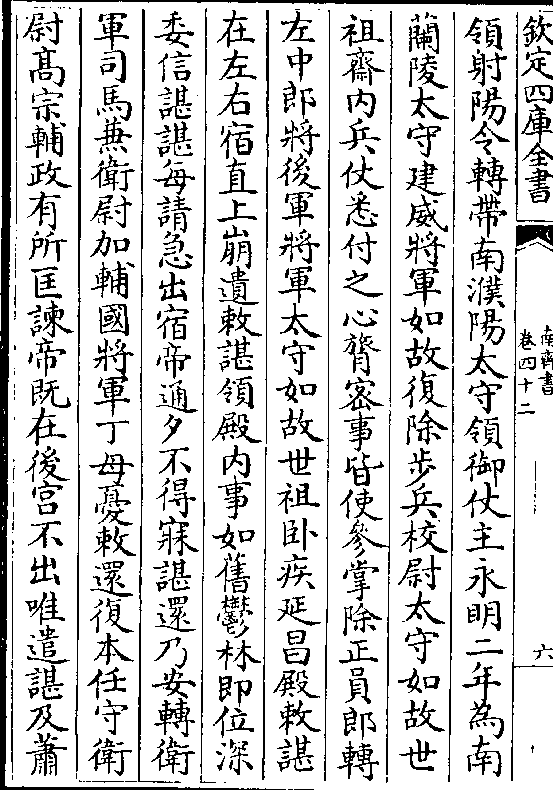 欽定四庫全書
南齊書
卷四十二
六
領射陽令轉帶南濮陽太守領御仗主永明二年為南
蘭陵太守建威將軍如故復除步兵校尉太守如故世
祖齋内兵仗悉付之心膂密事皆使參掌除正員郎轉
左中郎將後軍將軍太守如故世祖卧疾延昌殿敕諶
在左右宿直上崩遺敕諶領殿内事如舊鬱林即位深
委信諶諶每請急出宿帝通夕不得寐諶還乃安轉衛
軍司馬兼衛尉加輔國將軍丁母憂敕還復本任守衛
尉髙宗輔政有所匡諫帝既在後宫不出唯遣諶及蕭